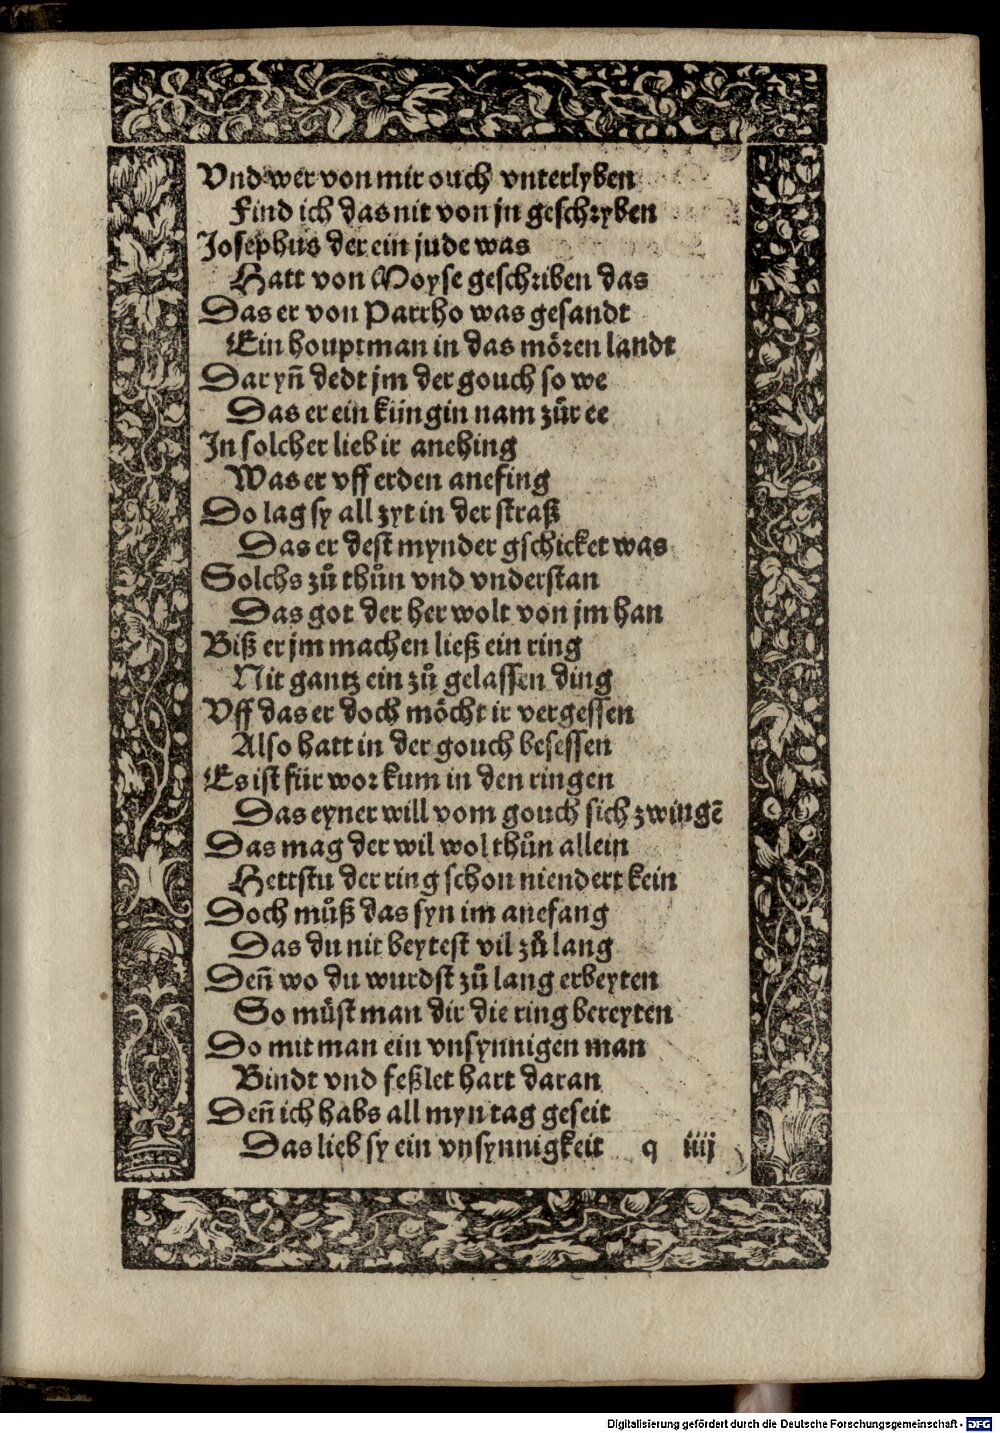 Vnd wer von mir ouch vnterlyben
Find ich das nit von jn geschryben
Josephus der ein jude was
Hatt von Moyse geschriben das
Das er von Parrho was gesandt
Ein houptman in das mören landt
Dar yn̄ dedt jm der gouch so we
Das er ein küngin nam zůr ee
In solcher lieb ir anehing
Was er vff erden anefing
Do lag sy all zyt in der straß
Das er dest mynder gschicket was
Solchs zů thůn vnd vnderstan
Das got der her wolt von jm han
Biß er jm machen ließ ein ring
Nit gantz ein zů gelassen ding
Vff das er doch möcht ir vergessen
Also hatt in der gouch besessen
Es ist für wor kum in den ringen
Das eyner will vom gouch sich zwingē
Das mag der wil wol thůn allein
Hettstu der ring schon niendert kein
Doch můß das syn im anefang
Das du nit beytest vil zů lang
Den̄ wo du wurdst zů lang erbeyten
So můst man dir die ring bereyten
Do mit man ein vnsynnigen man
Bindt vnd feßlet hart daran
Den̄ ich habs all myn tag geseit
Das lieb sy ein vnsynnigkeit q iiij
Digitalisierung gefördert durch die Deutsche Forschungsgemeinschaft - DFG